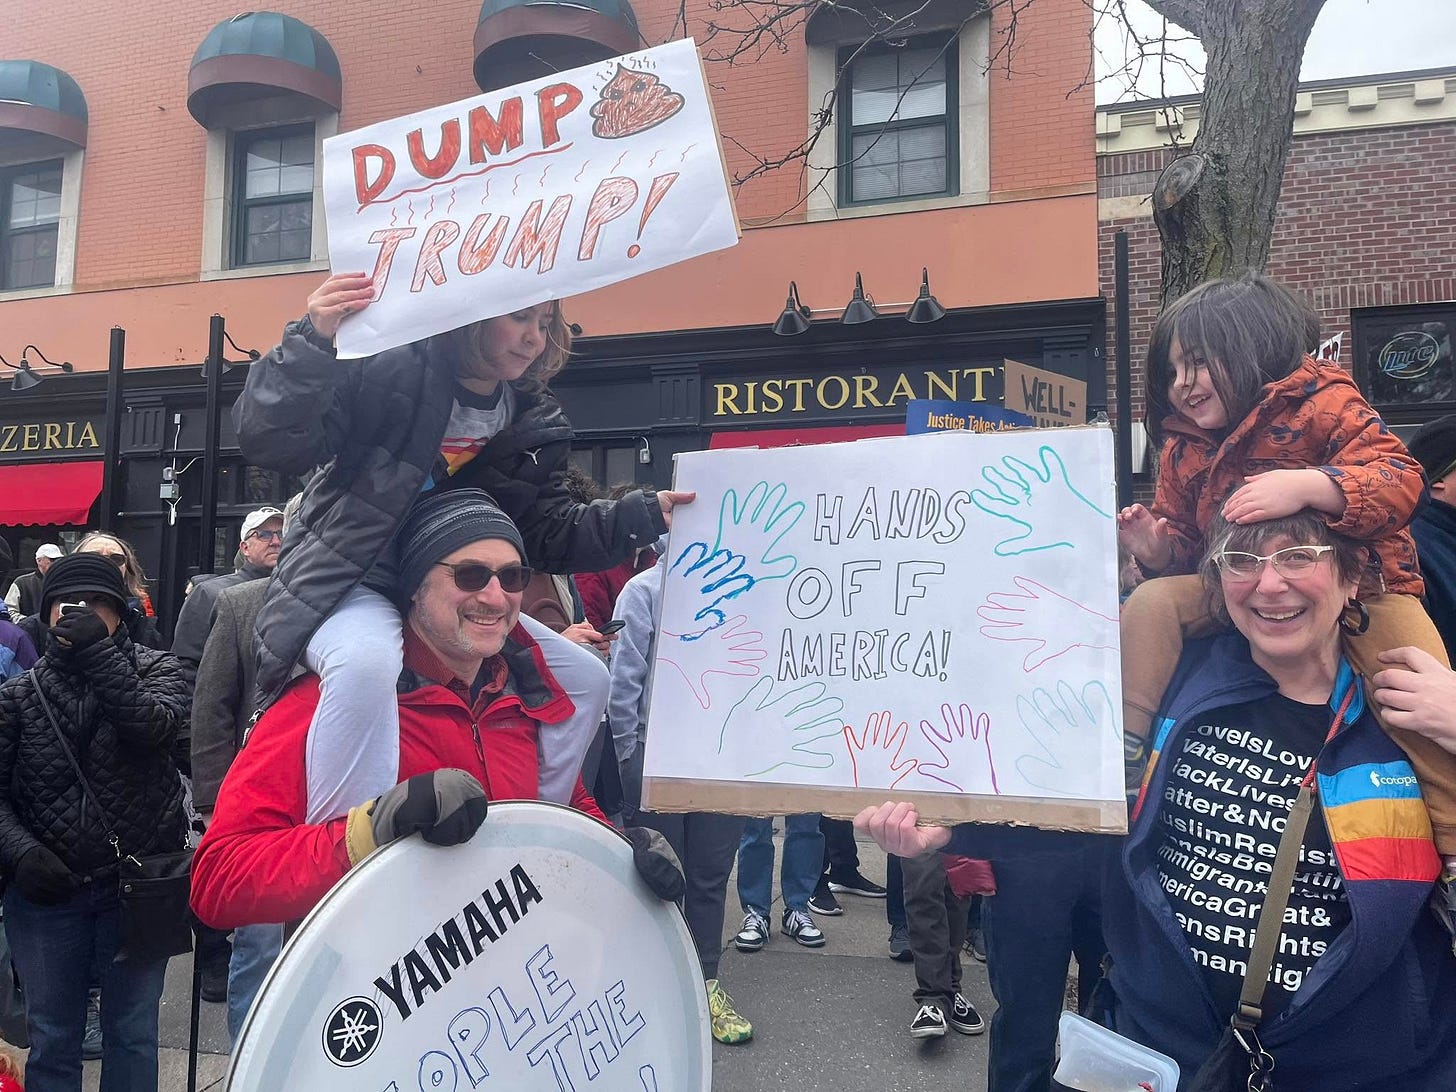 DUMP
TRUMP!
RISTORANT
ZERIA
Lite
WELL-
Justice Takes
HANDS
OFF
AMERICA!
YAMAHA
OPLE
THE
cotopa
LoveIsLov
WaterIsLif
lackLives
atter&No
uslimReist
nsIsBeautif
mmigrant
mericaGreat&
ensRights
manRig